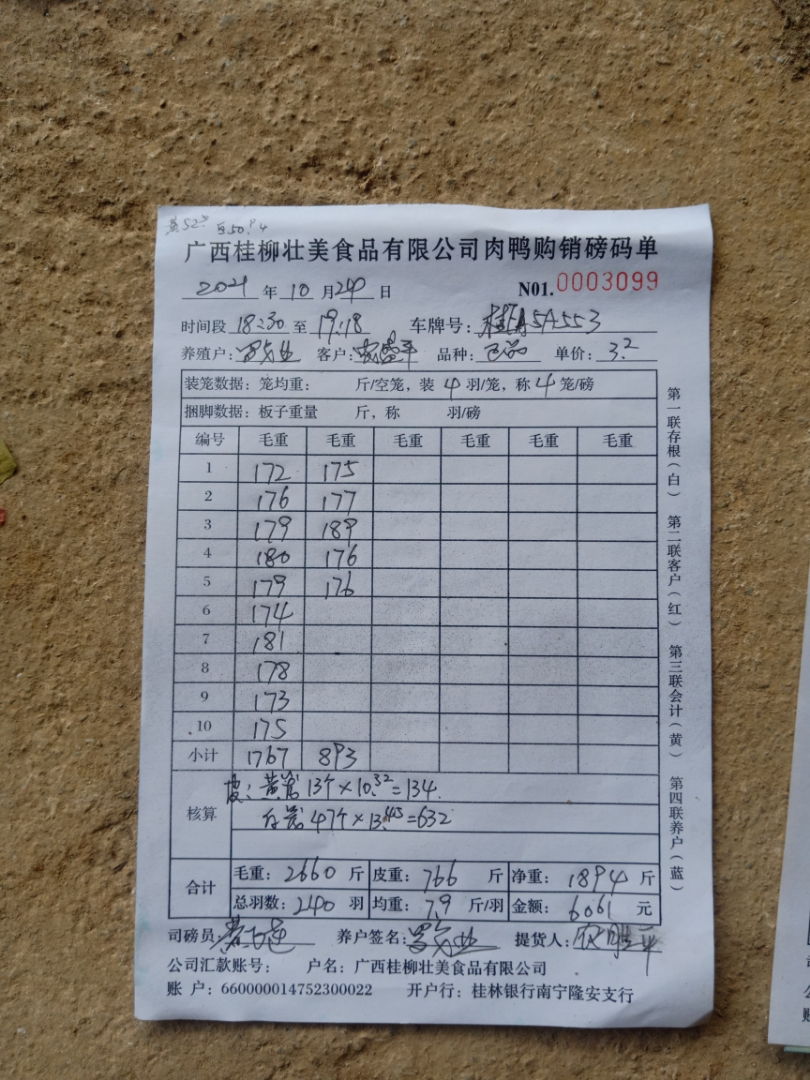 广西桂柳壮美食品有限公司肉鸭购销磅码单
2021 年 10 月 24 日 N01.0003099
时间段 18:30 至 19:18 车牌号: 5A553
养殖户: 客户: 品种: 单价: 3.2
装笼数据: 笼均重: 斤/空笼, 装 4 羽/笼, 称 4 笼/磅
捆脚数据: 板子重量 斤, 称 羽/磅
编号 毛重 毛重 毛重 毛重 毛重 毛重
1 172 175
2 176 177
3 179 189
4 180 176
5 179 176
6 174
7 181
8 178
9 173
10 175
小计 1767 893
核算 皮: 黄笼 13个×10.32=134
47个×13.45=632
合计 毛重: 2660 斤 皮重: 766 斤 净重: 1894 斤
总羽数: 240 羽 均重: 7.9 斤/羽 金额: 6061 元
司磅员: 养户签名: 提货人:
公司汇款账号: 户名: 广西桂柳壮美食品有限公司
账 户: 660000014752300022 开户行: 桂林银行南宁隆安支行
第一联存根(白) 第二联客户(红) 第三联会计(黄) 第四联养户(蓝)